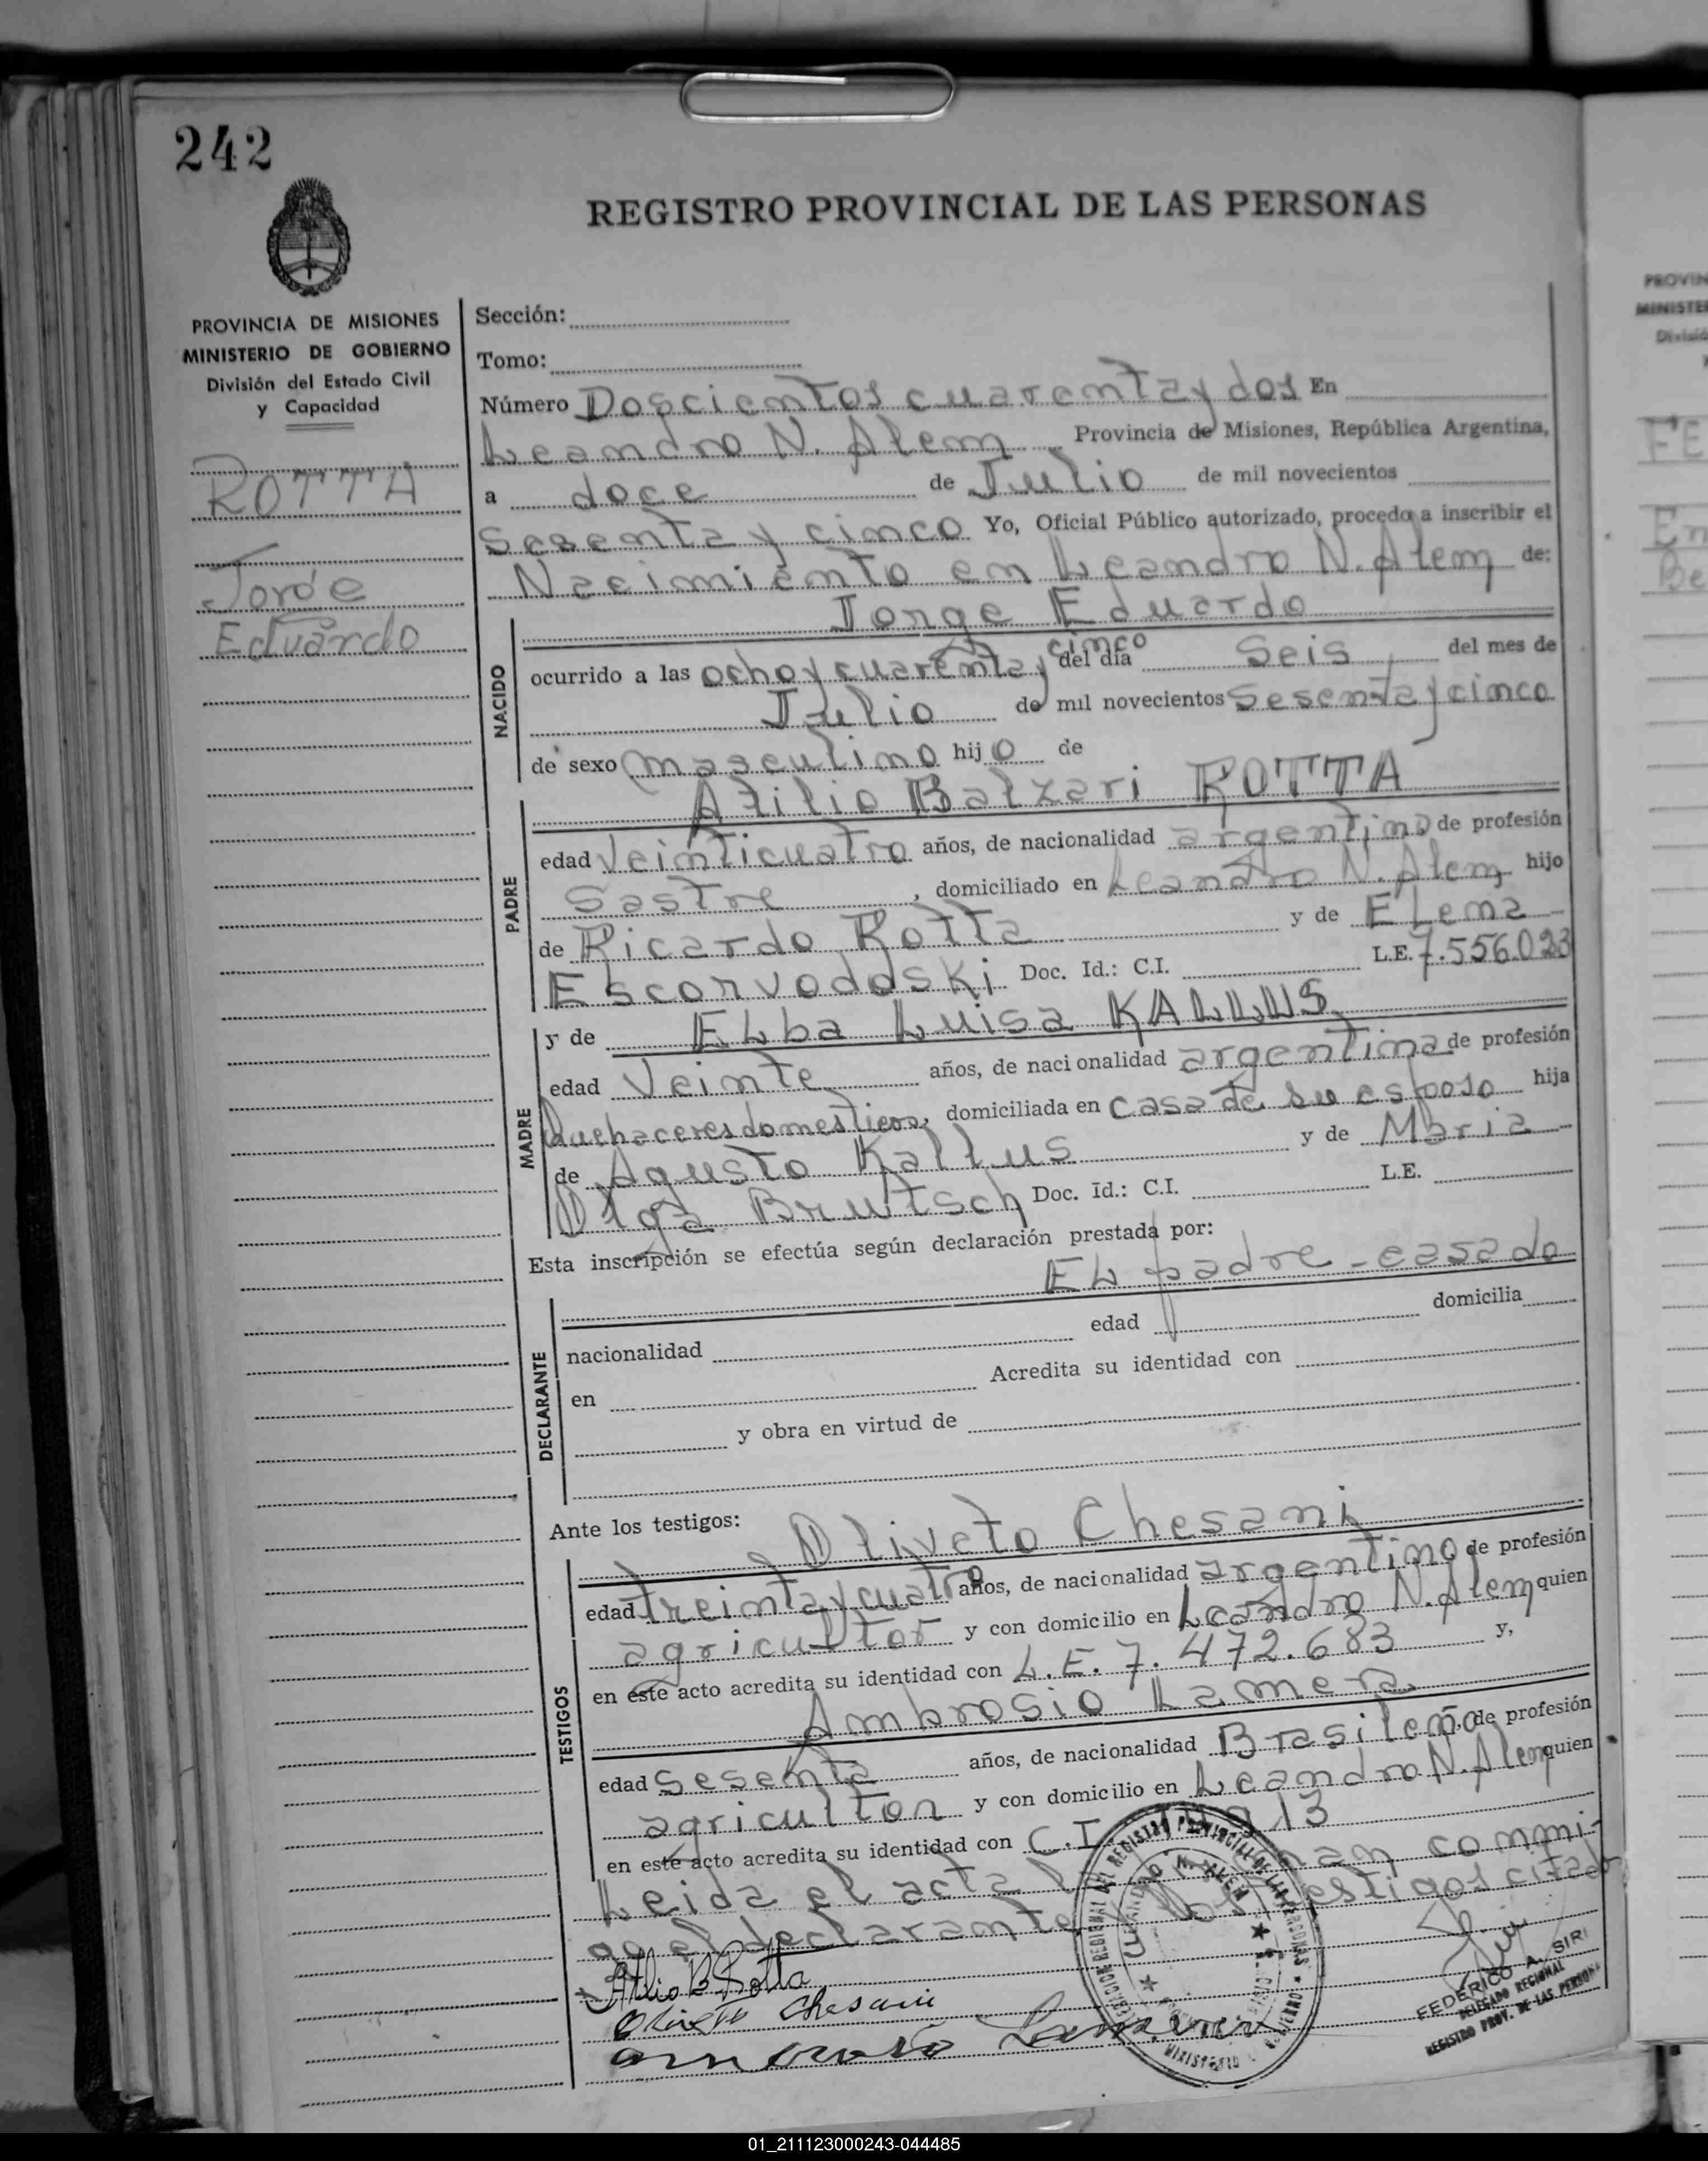 242
REGISTRO PROVINCIAL DE LAS PERSONAS
PROVINCIA DE MISIONES
MINISTERIO DE GOBIERNO
División del Estado Civil
y Capacidad
ROTTA
Jorge
Eduardo
Sección:
Tomo:
Número Doscientos cuarenta y dos En
Leandro N. Alem Provincia de Misiones, República Argentina,
a doce de Julio de mil novecientos
Sesenta y cinco Yo, Oficial Público autorizado, procedo a inscribir el
Nacimiento en Leandro N. Alem de:
Jorge Eduardo
NACIDO
ocurrido a las ocho y cuarenta y cinco del día Seis del mes de
Julio de mil novecientos Sesenta y cinco
de sexo masculino hijo de
PADRE
Atilio Balzari ROTTA
edad Veinticuatro años, de nacionalidad argentino de profesión
Sastre, domiciliado en Leandro N. Alem hijo
de Ricardo Rotta y de ELena
Escorvodoski Doc. Id.: C.I. L.E. 7.556.023
MADRE
y de ELba Luisa KALLUS
edad Veinte años, de nacionalidad argentina de profesión
Quehaceres domesticos, domiciliada en casa de su esposo hija
de Agusto Kallus y de Maria
Olga Brutsch Doc. Id.: C.I. L.E.
Esta inscripción se efectúa según declaración prestada por:
EL padre - casado
DECLARANTE
nacionalidad edad domicilia
en Acredita su identidad con
y obra en virtud de
Ante los testigos:
Oliveto Chesani
TESTIGOS
edad treinta y cuatro años, de nacionalidad argentino de profesión
agricultor y con domicilio en Leandro N. Alem quien
en este acto acredita su identidad con L.E. 7.472.683 y,
Ambrosio Lamera
edad Sesenta años, de nacionalidad Brasileño, de profesión
agricultor y con domicilio en Leandro N. Alem quien
en este acto acredita su identidad con C.I. 13
Leida el acta commi-
go el declarante y los testigos citados
Atilio B Rotta
Oliveto Chesani
FEDERICO A. SIRI
DELEGADO REGIONAL
REGISTRO PROV. DE LAS PERSONAS
PROVIN
MINISTE
Divisió
FE
En
Be
01_211123000243-044485